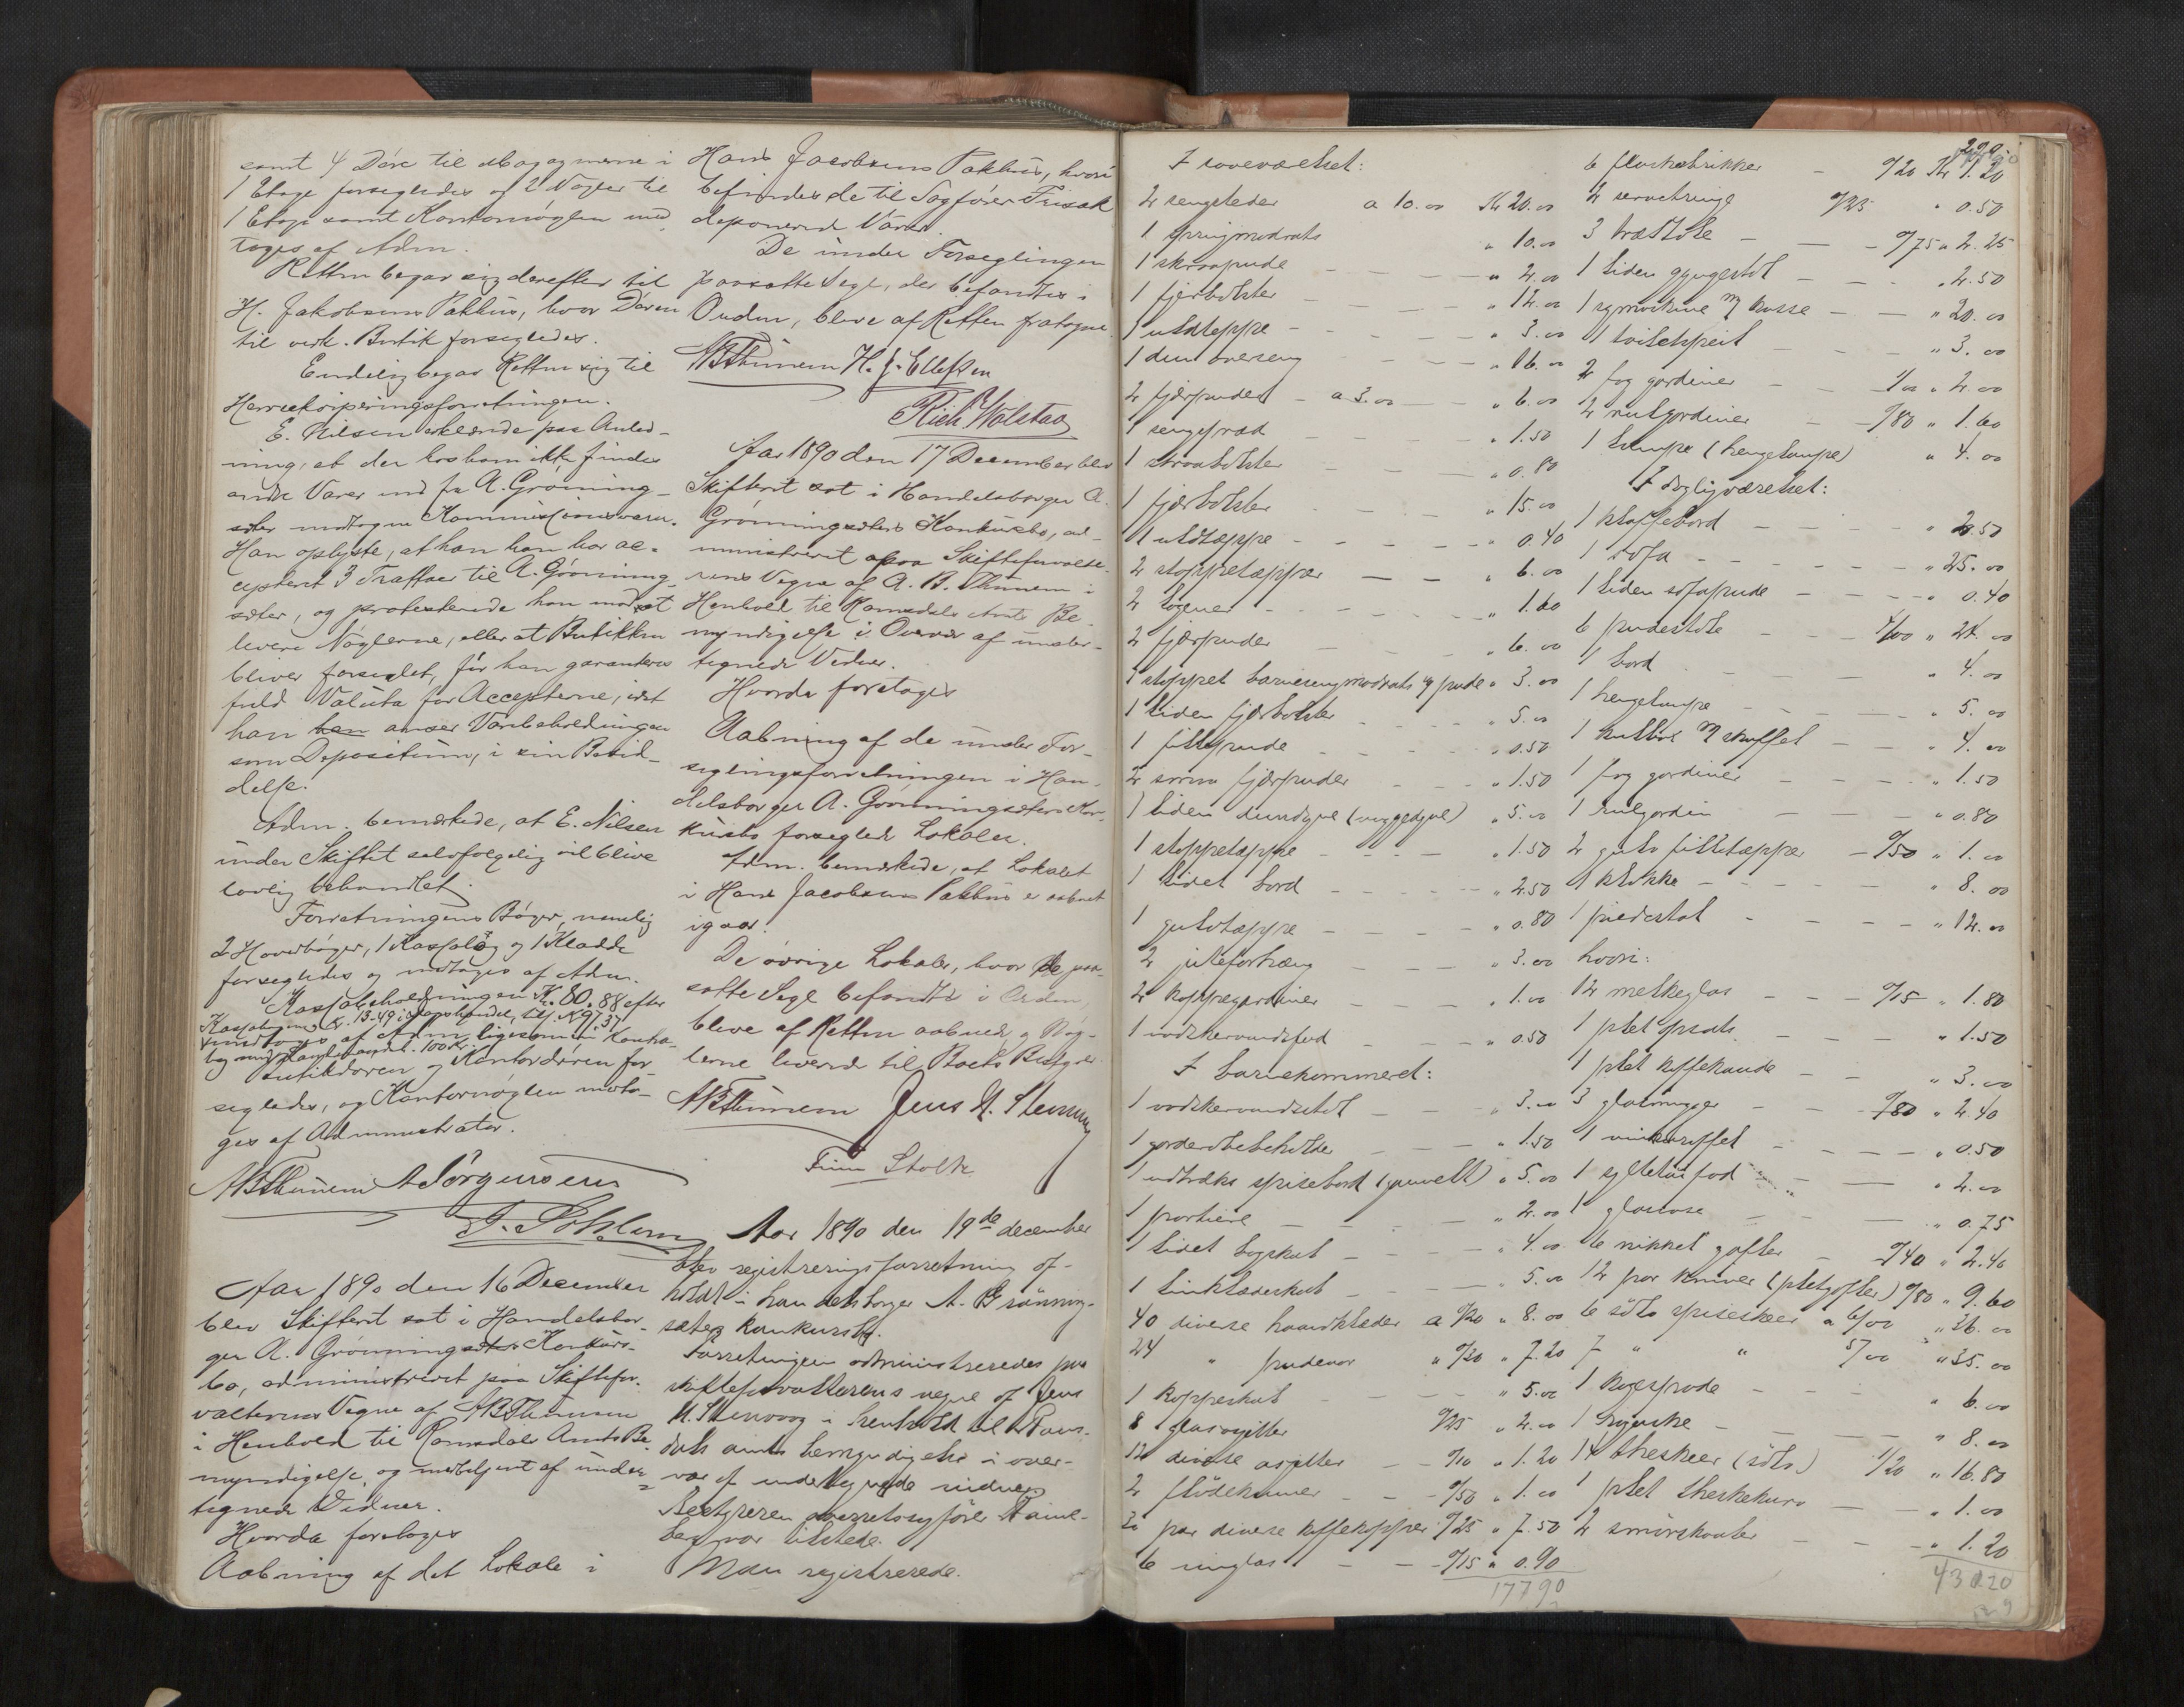 samt 4 Døre til Magaginerne i
1 Etage forsegledes og 2 Nøgler til
1 Etage samt Kontornøglen mod
toges af Adm.
Retten begav sig derefter til
H. Jakobsens Pakhus, hvor Døren
til nedr. Butik forsegledes.
Endelig begav Retten sig til
Herreekviperingsforretningen.
E. Nilsen erklærede paa Anled-
ning, at der hos ham ikke findes
andre Varer end fra A. Grønning-
sæter modtagne Kommissionsvarer.
Han oplyste, at han har ac-
cepteret 3 Tratter til A. Grønning
sæter, og protesterede han mod at
levere Nøglerne, eller at Butikken
bliver forseglet, før han garanteres
fuld Valuta for Accepterne, idet
han anser Varebeholdningen
som Depositum, i sin Besid-
delse.
Adm. bemærkede, at E. Nilsen
under Skiftet selvfølgelig vil blive
lovlig behandlet.
Forretningens Bøger, nemlig
2 Hovedbøger, 1 Kassabog og 1 Kladde
forsegledes og modtoges af Adm.
Kassabeholdningen Kr. 80.88 efter
Kassabogen Kr. 13-49
modtoges af Adm. ligesom
Butikdøren og Kontordøren for-
segledes, og Kontornøglen modto-
ges af Administrator.
ABThunem A Jørgensen
Aar 1890 den 16 December
blev Skifteret sat i Handelsbor-
ger A. Grønningsæters Konkurs-
bo, administreret paa Skiftefor-
valterens Vegne af ABThunem
i Henhold til Romsdals Amts Be-
myndigelse, og medbetjent af under-
tegnede Vidner.
Hvorda foretoges
Aabning af det Lokale i
Hans Jacobsens Pakhus, hvori
befindes de til Sagfører Frisak
deponerede Varer.
De under Forseglingen
paasatte Segl, der befandtes i
Orden, bleve af Retten fratagne
ABThunem H. J. Ellefsen
Rich Wolstad
Aar 1890 den 17 December blev
Skifteret sat i Handelsborger A.
Grønningsæters Konkursbo, ad-
ministreret paa Skifteforvalte-
rens Vegne af A. B. Thunem i
Henhold til Romsdals Amts Be-
myndigelse i Overvær af under-
tegnede Vidner.
Hvorda foretoges
Aabning af de under For-
seglingsforretningen i Han-
delsborger A. Grønningsæters Kon-
kursbo forseglede Lokaler.
Adm. bemærkede, at Lokalet
i Hans Jacobsens Pakhus er aabnet
igaar.
De øvrige Lokaler, hvor de paa-
satte Segl befandtes i Orden,
bleve af Retten aabnede og Nøg-
lerne leverede til Boets Bestyrer.
ABThunem Jens N. Stenvaag
Finn Stolth
Aar 1890 den 19de december
blev registreringsforretning af-
holdt i handelsborger A. Grönning-
sæters konkursbo.
Forretningen administreredes paa
skifteforvalterens vegne af Jens
N. Stenvaag i henhold til Roms-
dals amts bemyndigelse i over-
vær af undertegnede vidner
Bestyreren overretssagfører
var tilstede.
Man registrerede.
I soveværelset:
2 sengesteder a 10.00 Kr 20.00
1 springmadrats " 10.00
1 skraapude " 2.00
1 fjerbolster " 12.00
1 uldteppe " 3.00
1 dun overseng " 16.00
2 fjærpuder a 3.00 " 6.00
1 sengestad " 1.50
1 straabolster " 0.80
1 fjærbolster " 15.00
1 uldtæppe " 0.40
2 stoppetæpper " 6.00
2 lagener " 1.60
2 fjærpuder " 6.00
1 stoppet barnesengmadrats og pude " 3.00
1 liden fjærbolster " 5.00
1 fillepude " 0.50
2 smaa fjærpuder " 1.50
1 liden dundyne (vuggedyne) " 5.00
1 stoppetæppe " 1.50
1 lidet bord " 2.50
1 gulvtæppe " 0.80
2 juleforhæng " 3.00
2 kappegardiner " 1.00
1 vaskevandsfad " 0.50
I barnekammeret:
1 vaskevandsstol " 3.00
1 " 1.50
1 udtræks spisebord (gammelt) " 5.00
1 portiere " 2.00
1 lidet bogskab " 4.00
1 linklæderskab " 5.00
40 diverse haandklæder a 0/20 " 8.00
24 " pudevar " 0/30 " 7.20
1 koppeskab " 5.00
8 glasasjetter 0/25 " 2.00
12 diverse asjetter 0/10 " 1.20
2 flödekanner 0/50 " 1.00
30 par diverse kaffekopper 0/25 " 7.50
6 vinglas 0/15 " 0.90
17790
290
6 flaskebrikker 0/20 Kr 1.20
2 servietringe 0/25 " 0.50
3 træstole 0/75 " 2.25
1 liden gyngestol " 2.50
1 symaskine m kasse " 20.00
1 toiletspeil " 3.00
2 fag gardiner 1/00 " 2.00
2 rulgardiner 0/80 " 1.60
1 lampe (hengelampe) " 4.00
I dagligværelset:
1 klaffebord " 2.50
1 sofa " 25.00
1 liden sofapude " 0.40
6 pudestole 4/00 " 24.00
1 bord " 4.00
1 hengelampe " 5.00
1 kulbox m skuffel " 4.00
1 fag gardiner " 1.50
1 rulgardin " 0.80
2 gulv filletæpper 0/50 " 1.00
1 klokke " 8.00
1 piedestal " 12.00
hvori:
12 melkeglas 0/15 " 1.80
1 plet opsats " 1.50
1 plet kaffekande " 3.00
3 glasmugger 0/80 " 2.40
1 " 0.50
1 syltetøifad " 2.00
1 glasvase " 0.75
6 nikkel gafler 0/40 " 2.40
12 par kniver (pletgafler) 0/80 " 9.60
6 sölv spiseskeer a 6/00 " 36.00
7 " " 5/00 " 35.00
1 kagespade " 6.00
1 " 8.00
14 theskeer (sölv) 1/20 " 16.80
1 plet theskekurv " 1.00
2 " 1.20
43020